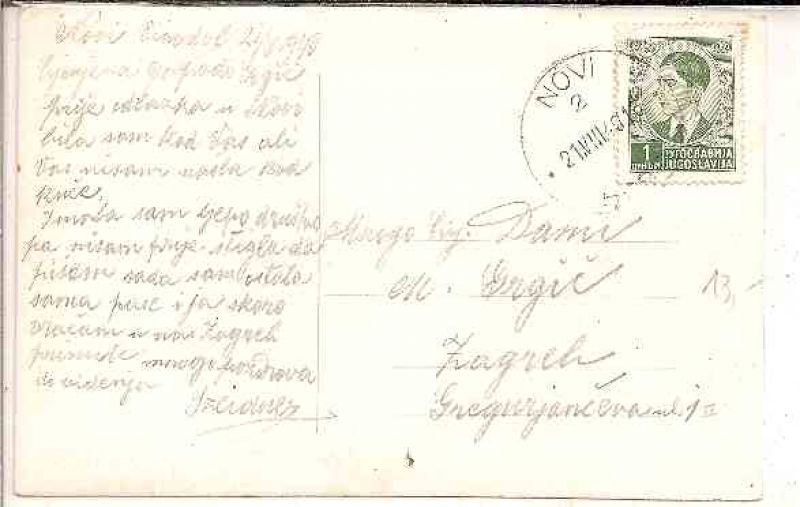 Novi Vinodol 21/8 1940
Cjenjena Gospodo Grgić
prije odlazka u Novi
bila sam kod Vas ali
Vas nisam našla kod
kuće,
Imala sam ljepo društvo
pa nisam prije stigla da
pišem sada sam ostala
sama pušc i ja skoro
vraćam u na Zagreb
primite mnogo pozdrova
do viđenja
NOVI
2
21.VIII.40
1
ДИНАР
ЈУГОСЛАВИЈА
JUGOSLAVIJA
Mnogo Cij. Dami
M. Grgić
13,-
Zagreb
Gregurjančeva ul. 1 II